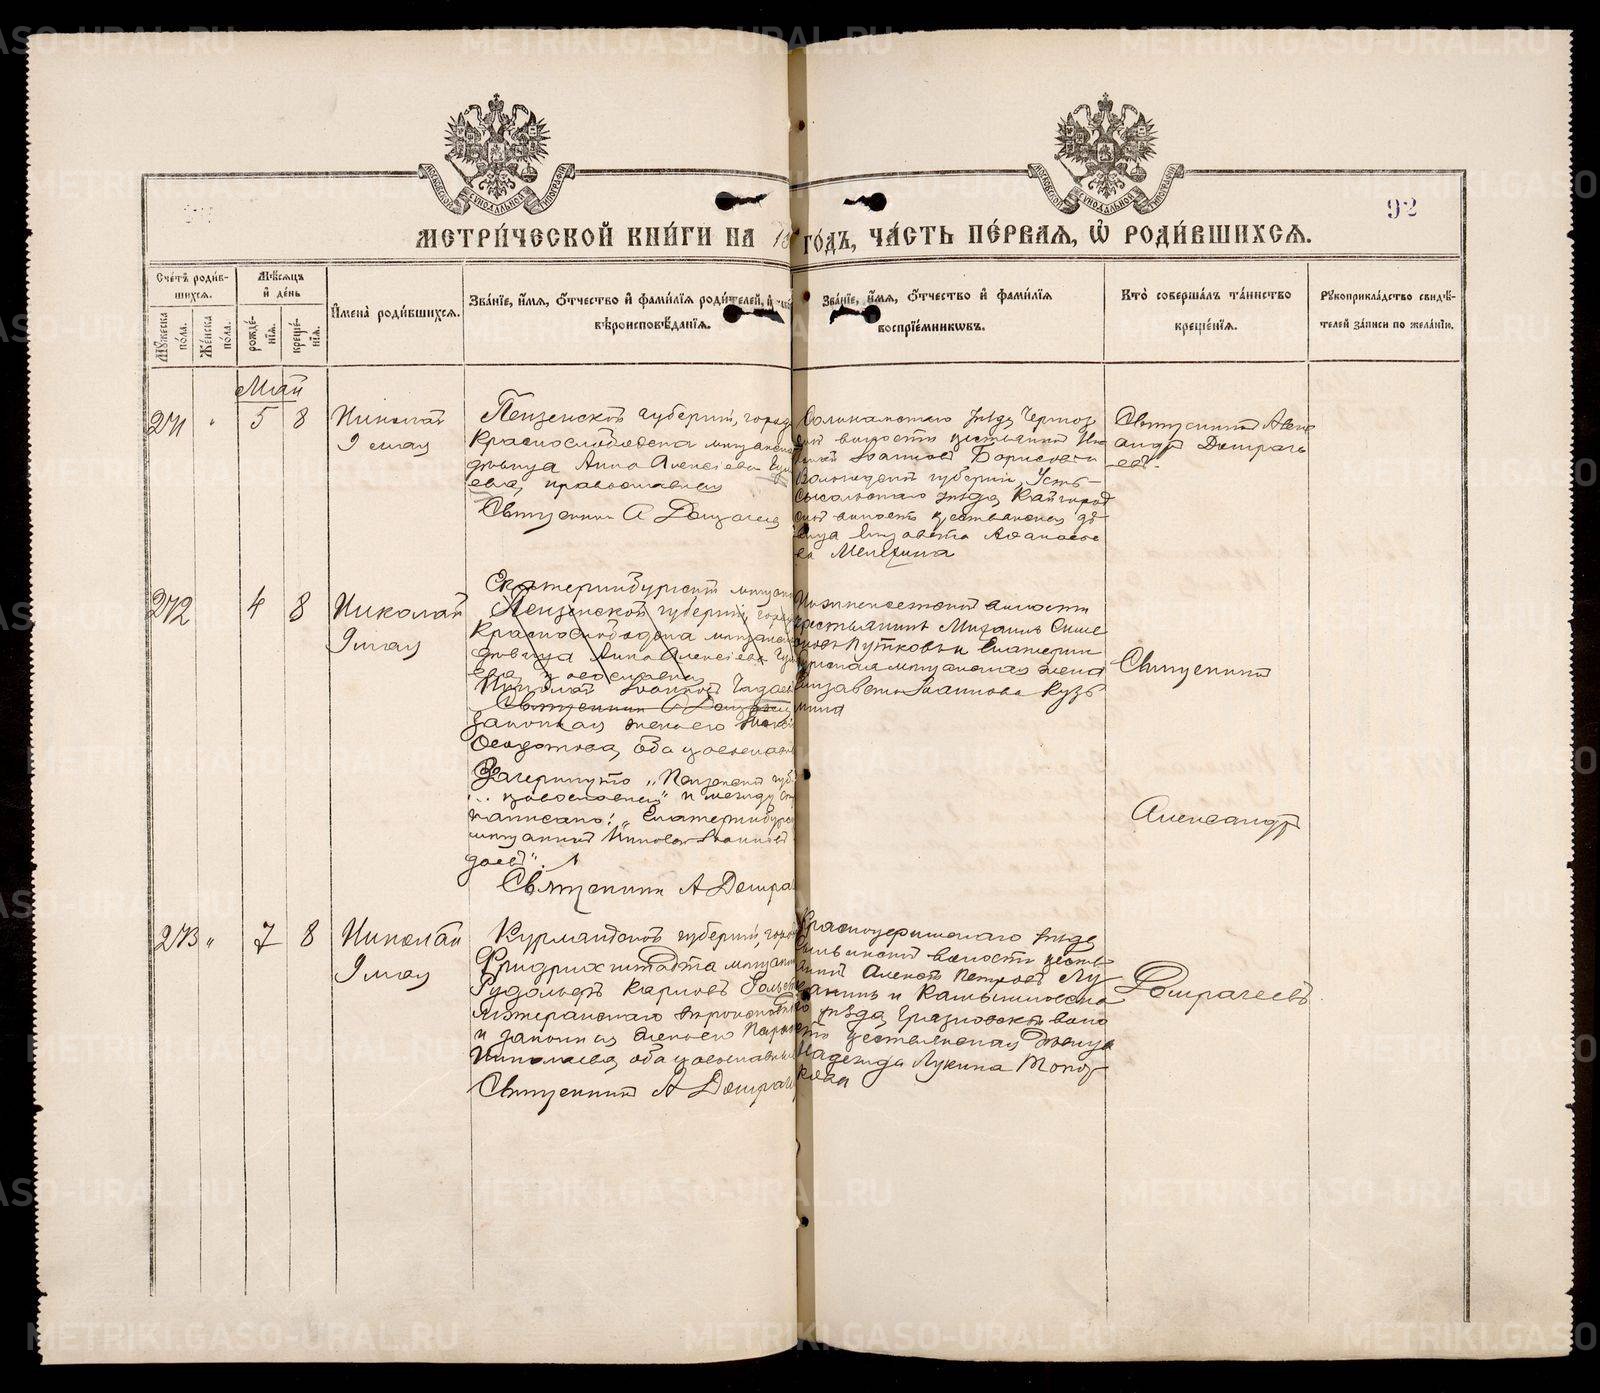 92
МЕТРИ́ЧЕСКОЙ КНИ́ГИ НА 18 ГО́ДЪ, ЧА́СТЬ ПЕ́РВАЯ, Ѽ РОДИ́ВШИХСЯ.
Сче́тъ роди́в-
шихся.
Мꙋжеска по́ла.
Же́нска по́ла.
Мѣ́сяцъ
и҆ де́нь
рожде́-нїя.
креще́-нїя.
И҆мена̀ роди́вшихся.
Зва́нїе, и҆́мя, ѻ҆́тчество и҆ фами́лїя роди́телей, и҆
вѣроисповѣ́данїя.
Зва́нїе, и҆́мя, ѻ҆́тчество и҆ фами́лїя
воспрїе́мникѡвъ.
Кто̀ соверша́лъ та́инство
креще́нїя.
Рꙋкоприкла́дство свидѣ́-
телей за́писи по жела́нїю.
Май
271 " 5 8
Николай
9 мая
Пензенской губернiи, города
Краснослободска мѣщанская
дѣвица Анна Алексѣева
ева, православная
Священникъ А Домрачеев
Соликамскаго уѣзда Чермоз
ской волости крестьянинъ
Иоанновъ Борисовъ и
Вологодской губернiи, Усть-
сысольскаго уѣзда Кайгород
ской волости крестьянская дѣ-
вица Елизавета Афанасье
ва Мелехина
Священникъ Алекс
андръ Домраче
евъ.
272 4 8
Николай
9 мая
Екатеринбургскiй мѣщани
Пензенской губернiи, города
Краснослободска мѣщанская
дѣвица Анна Алексѣева
ева, православная
Николай Иоанновъ
Священникъ А Домрачеев
законная жена его
Ѳедотова, оба православн
Зачеркнуто „Пензенской губ.
... православная" и между
написано: „Екатеринбург
мѣщанинъ Николай Иоанновъ
даевъ".
Священникъ А Домра
волости
крестьянинъ Михаилъ Симе
оновъ Путковъ и Екатерин
бургская мѣщанская жена
Елизавета Иоаннова Кузь
мина
Священникъ
Александръ
273 " 7 8
Николай
9 мая
Курляндской губернiи, города
Фридрихштадта мѣщанинъ
Рудольфъ Карловъ
лютеранскаго вѣроисповѣ
и законная жена его
Николаева, оба православные
Священникъ А Домрач
Красноуфимскаго уѣзда
волости кресть
янинъ Алексѣй Петровъ Лу
канинъ и Камышловска
го уѣзда, Грязновской воло
сти крестьянская дѣвица
Надежда Лукина Топор
кова
Домрачеевъ
METRIKI.GASO-URAL.RU